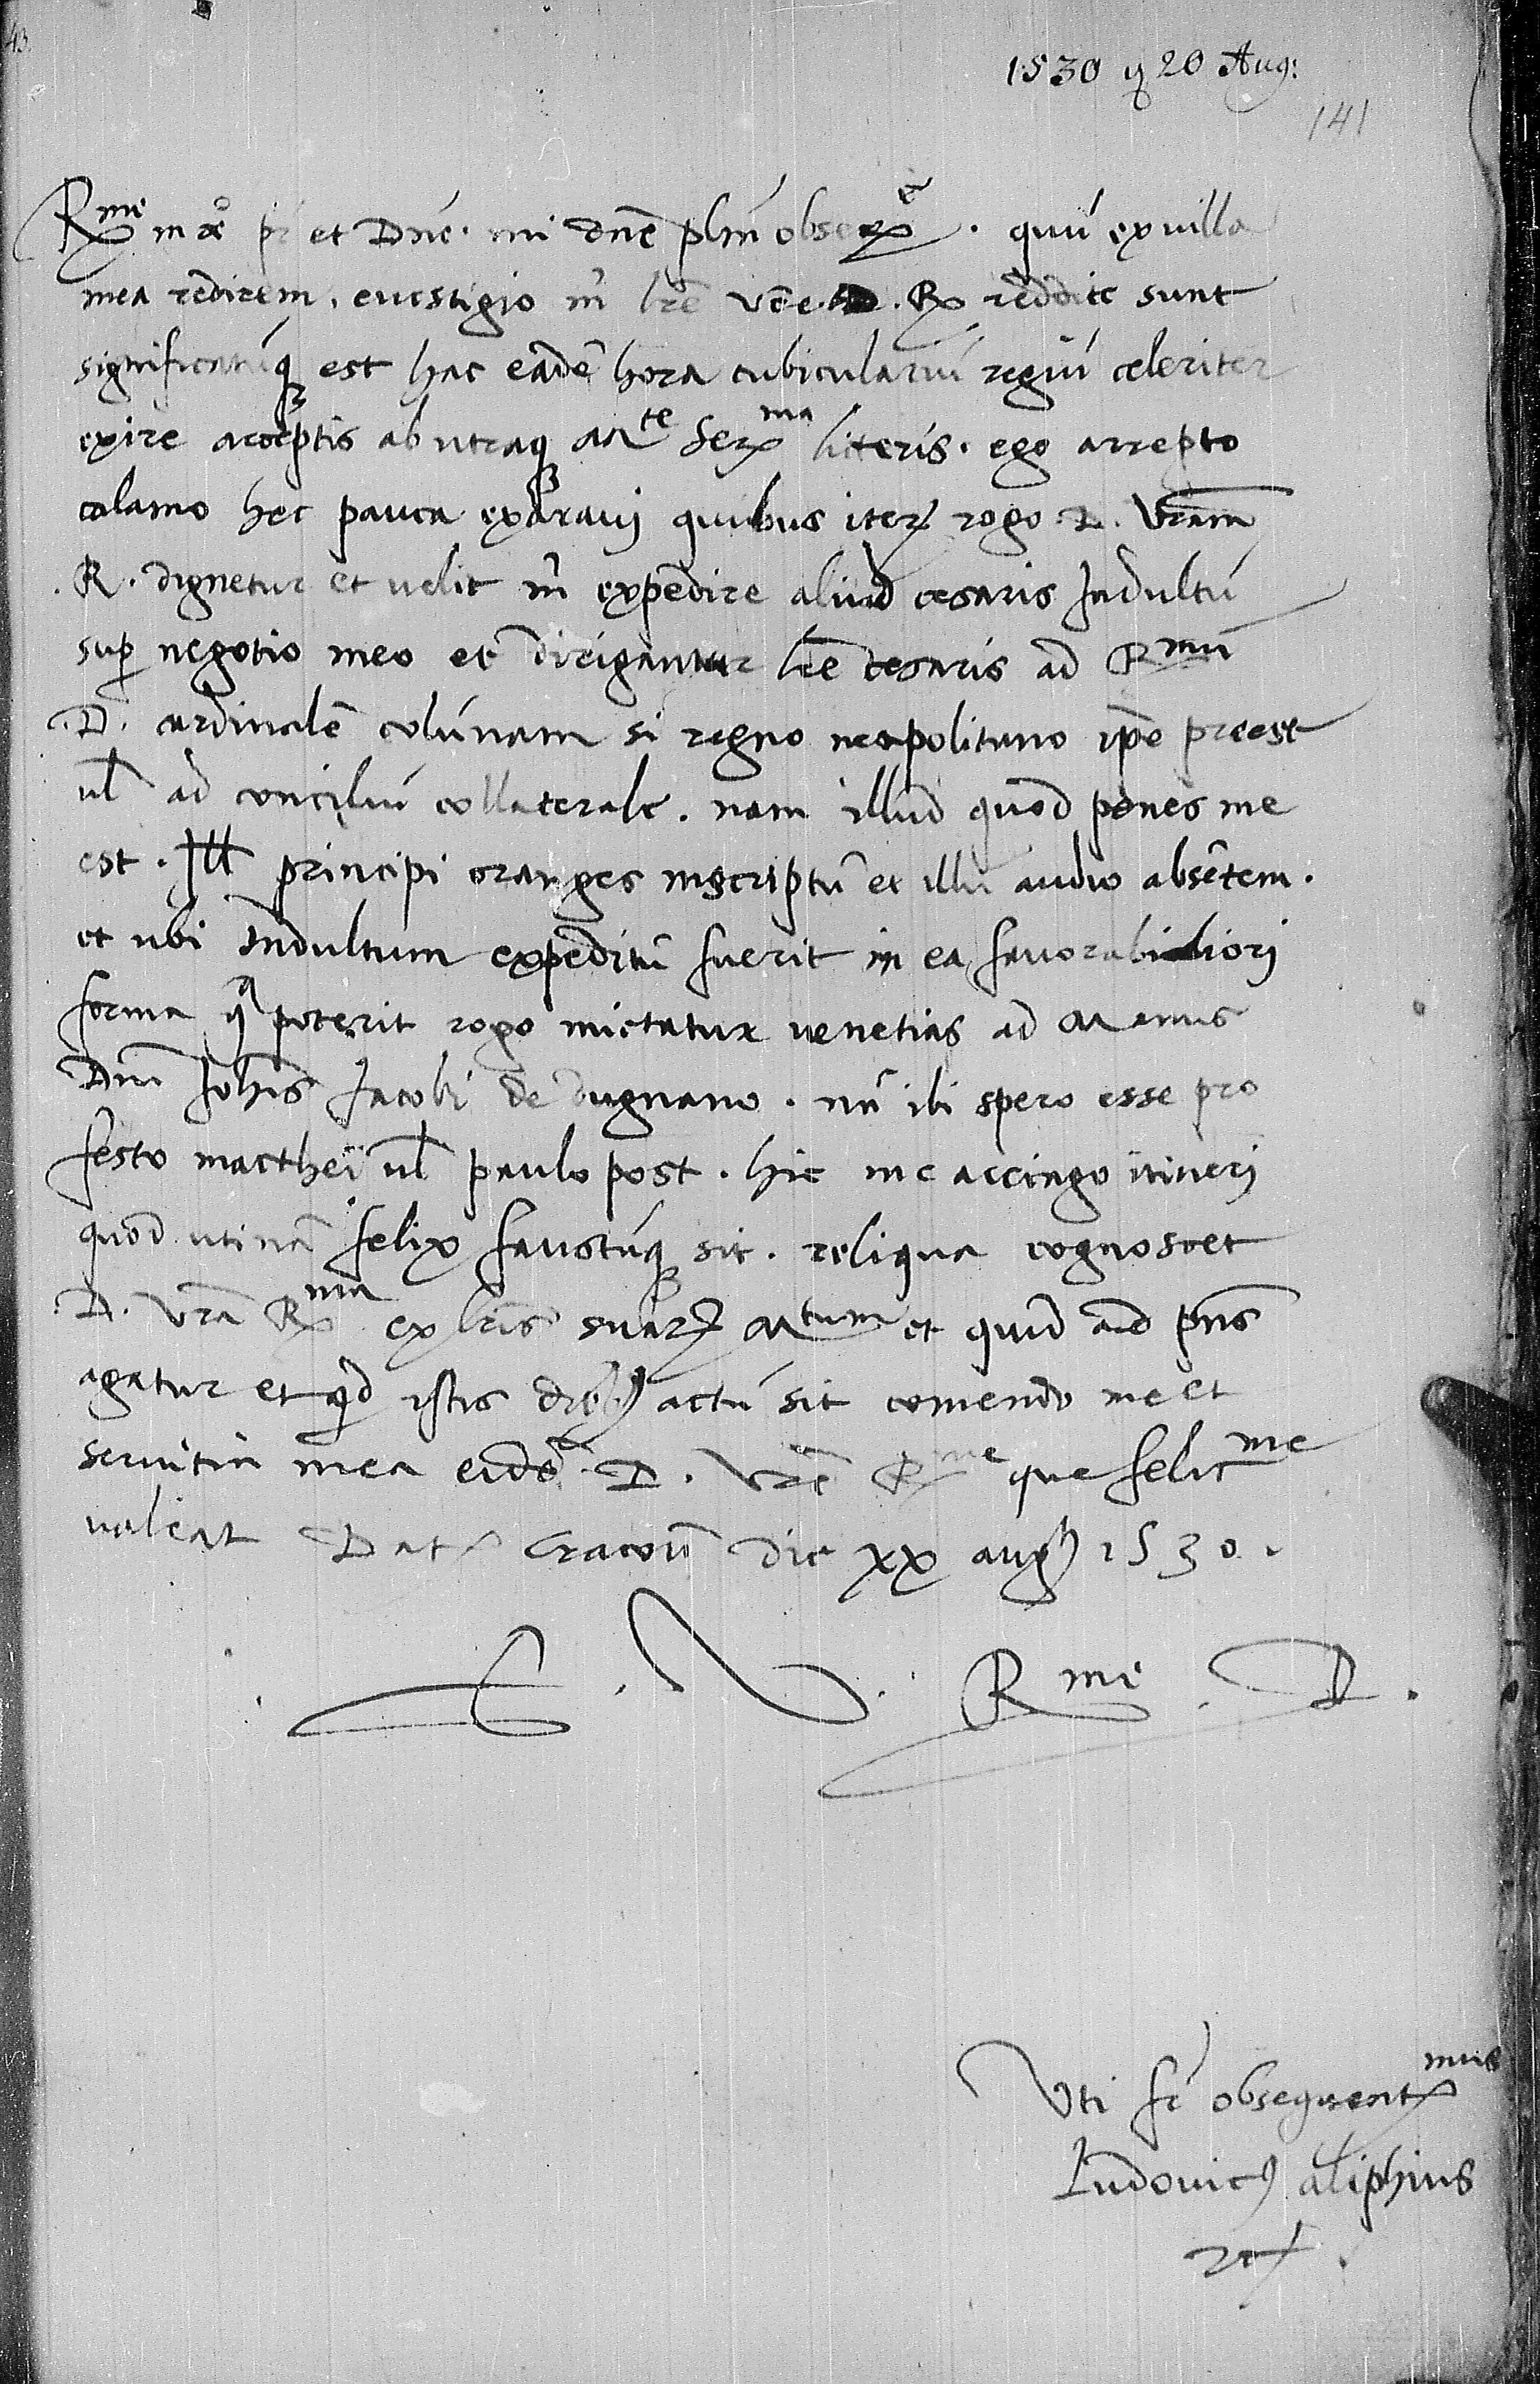 43.
1530 ꝗ 20 Aug:
141
Rme in xo pr et Dne. mi dne plm obserme. quu ex uilla
mea redirem. euestigio m lre vre D. R. reddite sunt
significatuq est hac eade hora cubicularuu regiu celeriter
exire acceptis ab utraq Mte Serma litteris. ego arrepto
calamo hec pauca exaravi quibus iterꝝ rogo .D. vram
.R. dignetur et uelit m expedire aliud cesaris Indultu
sup negotio meo et dirigantur lre cesaris ad Rmu
.D. cardinale colunam si regno neapolitano ipe preest
ul ad conciliu collaterale. nam illud quod penes me
est. Ill principi oranges inscriptu et illu audio absetem.
et ubi Indultum expeditu fuerit in ea favorabiliori
forma qa poterit rogo mictatur venetias ad Manus
Dni Johis Jacobi de dugnano. nu ibi spero esse pro
festo matthei ul paulo post. hic me accingo itineri
quod utina felix faustuq sit. reliqua cognoscet
.D. vra Rma ex lris suarꝝ Mtum et quid ad pns
agatur et qd istis dieb9 actu sit comendo me et
servitia mea eide .D. vre Rme que felicme
valeat Dat Cracou die xx aug9 1530.
E. V. Rme. D.
Uti sr obsequentmus
Ludovic9 aliphius